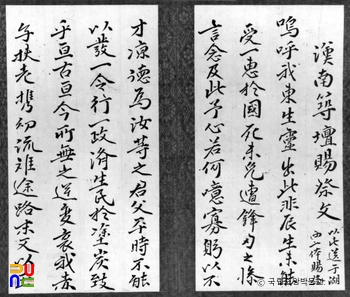 漢南築壇賜祭文
以此送于湖
嗚呼我東生靈出此非辰生未能
受一惠於國死未免遭鋒刃之慘
言念及此予心若何噫寡躬以不
才凉德為汝等之君父平時不能
以發一令行一政濟生民於塗炭致
乎亘古亘今所無之逆變哀我赤
子扶老携幼流離途路又以